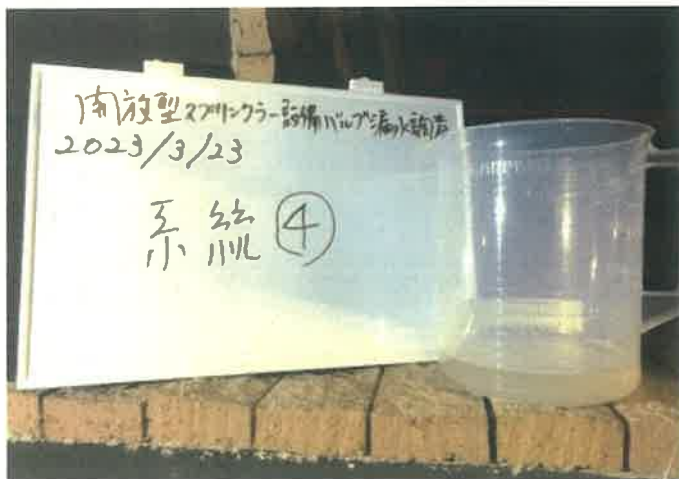 開放型スプリンクラー設備バルブ漏水調査
2023/3/23
系統④